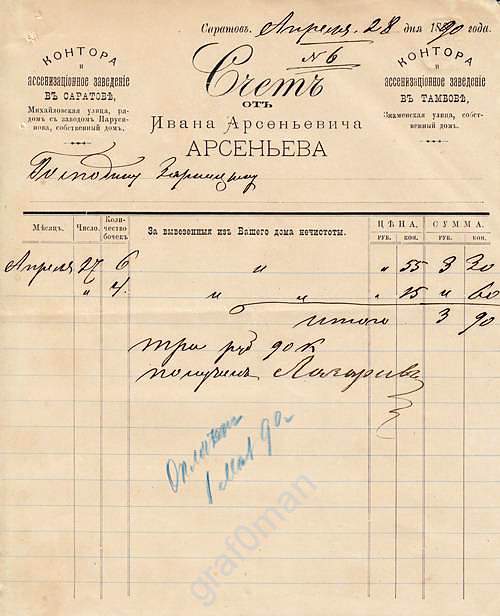 Саратовъ. Апреля 28 дня 1890 года.
КОНТОРА
и
ассенизаціонное заведеніе
ВЪ САРАТОВѢ,
Михайловская улица, ря-
домъ съ заводомъ Паруси-
нова, собственный домъ.
№ 6
Счетъ
ОТЪ
Ивана Арсеньевича
АРСЕНЬЕВА
КОНТОРА
и
ассенизаціонное заведеніе
ВЪ ТАМБОВѢ,
Знаменская улица, собст-
венный домъ.
Господину
Мѣсяцъ. Число. Коли-чество бочекъ. За вывезенныя изъ Вашего дома нечистоты. ЦѢНА. РУБ. КОП. СУММА. РУБ. КОП.
Апреля 27 6 „ „ 55 3 30
„ 4. „ „ „ 15 „ 60
итого 3 90
три руб 90 К
получилъ Лазаревъ
1 мая 90г
graf0man